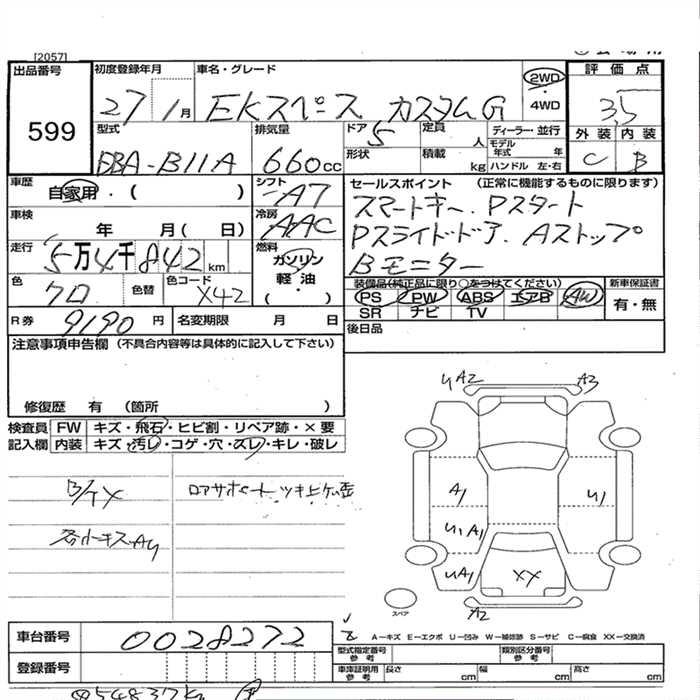 [2057]
出品番号
599
初度登録年月
27 1月
車名・グレード
EKスペース カスタムG
2WD
・
4WD
評価点
3.5
外装 内装
C B
型式
DBA-B11A
排気量
660cc
ドア 5
形状
定員 人
積載 kg
ディーラー・並行
モデル年式 年
ハンドル 左・右
車歴
自家用・( )
シフト
AT
車検
年 月( 日)
冷房
AAC
走行
5万4千842km
燃料
ガソリン
軽油
( )
色
クロ
色替
色コード
X42
R券 9190円
名変期限 月 日
セールスポイント (正常に機能するものに限ります)
スマートキー. Pスタート
Pスライドドア. Aストップ
Bモニター
装備品(純正品に限り○をつけてください)
PS PW ABS エアB AW
SR ナビ TV
新車保証書
有・無
後日品
注意事項申告欄 (不具合内容等は具体的に記入して下さい)
修復歴 有 (箇所 )
検査員 FW キズ・飛石・ヒビ割・リペア跡・×要
記入欄 内装 キズ・汚レ・コゲ・穴・スレ・キレ・破レ
ロアサポートツキ上ゲ歪
UA2 A3
A1
U1 A1
U1
UA1
XX
A2
スペア
A-キズ E-エクボ U-凹み W-補修跡 S-サビ C-腐食 XX-交換済
車台番号
0028272
登録番号
型式指定番号 参考
類別区分番号 参考
車庫証明用 参考
長さ cm
幅 cm
高さ cm